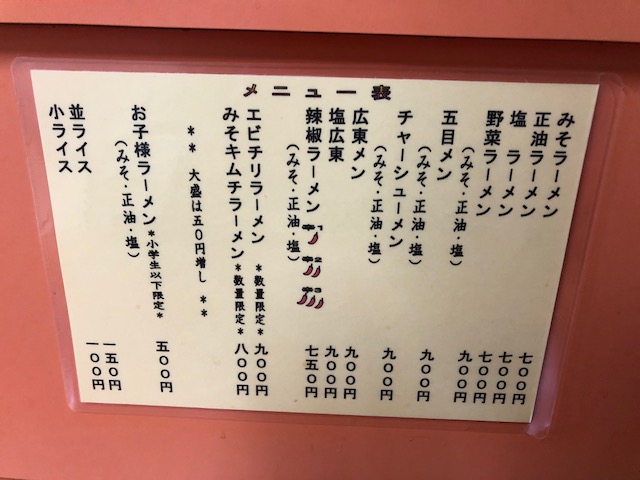 メニュー表
みそラーメン 七〇〇円
正油ラーメン 七〇〇円
塩 ラーメン 七〇〇円
野菜ラーメン 九〇〇円
(みそ・正油・塩)
五目メン 九〇〇円
(みそ・正油・塩)
チャーシューメン 九〇〇円
(みそ・正油・塩)
広東メン 九〇〇円
塩広東 九〇〇円
辣椒ラーメン 七五〇円
(みそ・正油・塩)
エビチリラーメン *数量限定* 九〇〇円
みそキムチラーメン *数量限定* 八〇〇円
** 大盛は五〇円増し **
お子様ラーメン *小学生以下限定* 五〇〇円
(みそ・正油・塩)
並ライス 一五〇円
小ライス 一〇〇円